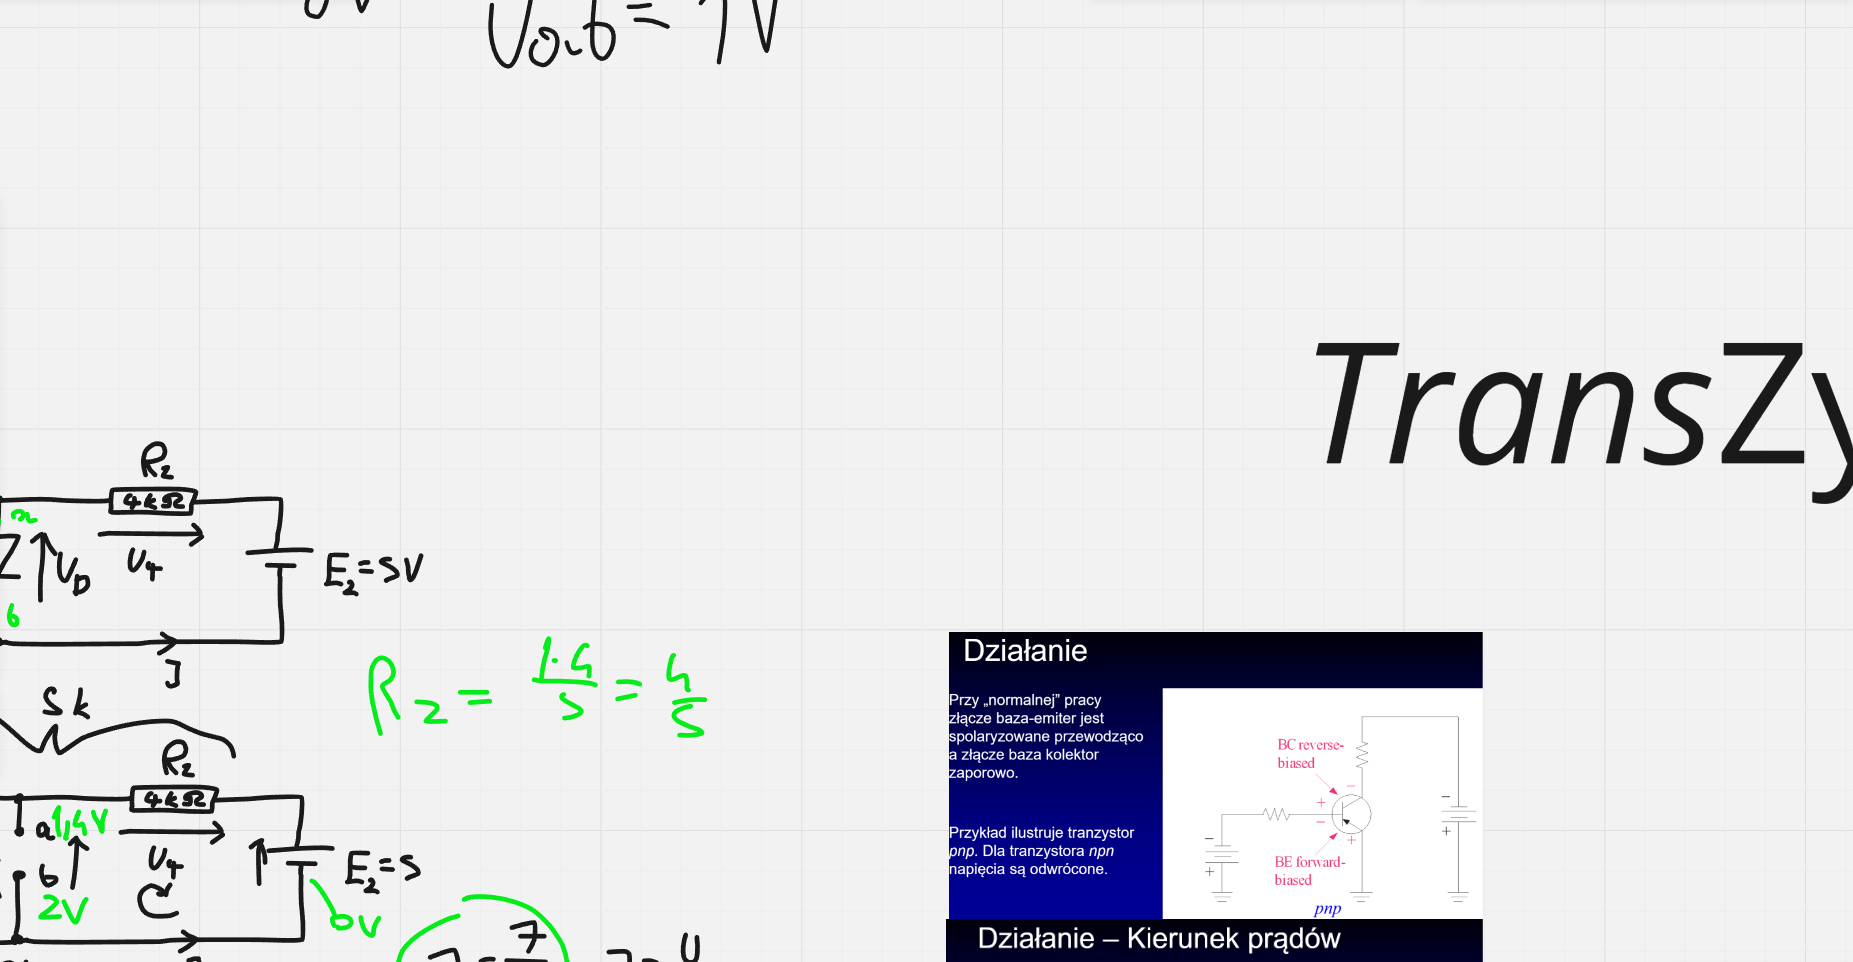 Uout = 1V
TransZy
R2
4kΩ
UD
U4
E2=5V
b
I
R2 = 1·4/5 = 4/5
5k
R2
4kΩ
a 1,4V
U4
E2=5
b
2V
0V
7
U
Działanie
Przy „normalnej” pracy
złącze baza-emiter jest
spolaryzowane przewodząco
a złącze baza kolektor
zaporowo.
Przykład ilustruje tranzystor
pnp. Dla tranzystora npn
napięcia są odwrócone.
BC reverse-
biased
+
−
−
+
BE forward-
biased
−
+
−
+
pnp
Działanie – Kierunek prądów